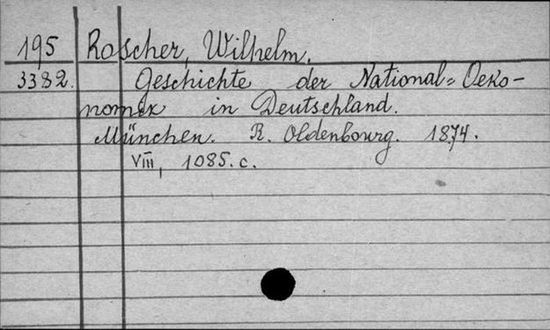 195 Roscher, Wilhelm.
3382. Geschichte der National=Oeko-
nomik in Deutschland.
München. R. Oldenbourg. 1874.
VIII, 1085.c.